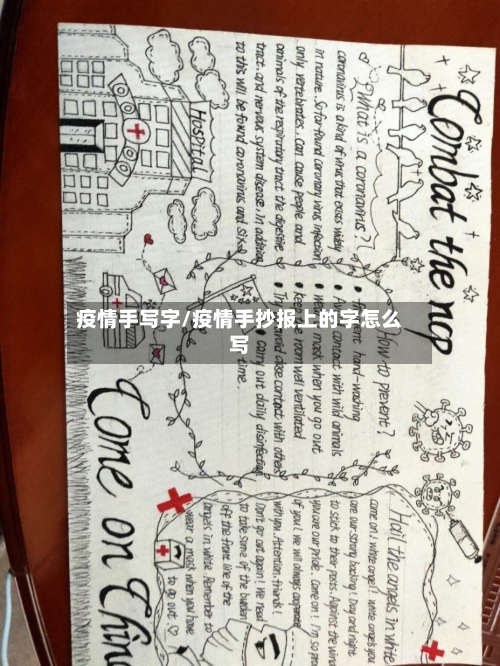 Combat the ncp
What is a coronavirus?
coronavirus is a kind of virus that exists widely
in nature. So far found coronary virus infection
only vertebrates. Can cause people and
animals of the respiratory tract, the digestive
tract, and nervous system disease. In addition,
to this will be found coronavirus and six
Hospital
疫情手写字/疫情手抄报上的字怎么
写
How to prevent?
hand-washing
contact with wild animals
mask when you go out
room well ventilated
avoid close contact with others
Carry out daily disinfection
time.
Hail the angels in white
come on! white angel! white angels, you
are our strong backing! Day and night
to stick to their posts. Against the wind
you are our pride. Come on! I'm so
of you! We will always cooperate
with you. Attention, friends!
Don't go out again! We need
to take some of the burden
off the front line of the
angels in white. Remember to
wear a mask when you have
to go out
Come on